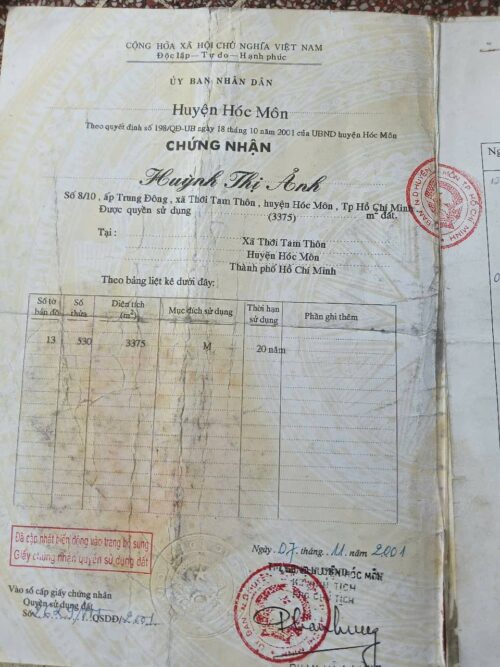 CỘNG HÒA XÃ HỘI CHỦ NGHĨA VIỆT NAM
Độc lập – Tự do – Hạnh phúc
ỦY BAN NHÂN DÂN
Huyện Hóc Môn
Theo quyết định số 198/QĐ-UB ngày 18 tháng 10 năm 2001 của UBND huyện Hóc Môn
CHỨNG NHẬN
Huỳnh Thị Ảnh
Số 8/10 , ấp Trung Đông , xã Thới Tam Thôn , huyện Hóc Môn , Tp Hồ Chí Minh
Được quyền sử dụng (3375) m² đất.
Tại : Xã Thới Tam Thôn
Huyện Hóc Môn
Thành phố Hồ Chí Minh
Theo bảng liệt kê dưới đây:
Số tờ bản đồ Số thửa Diện tích (m²) Mục đích sử dụng Thời hạn sử dụng Phần ghi thêm
13 530 3375 M 20 năm
Đã cập nhật biến động vào trang bổ sung
Giấy chứng nhận quyền sử dụng đất
Ngày 07 tháng 11 năm 2001
HUYỆN HÓC MÔN
CHỦ TỊCH
Vào sổ cấp giấy chứng nhận
Quyền sử dụng đất
Số QSDĐ/ 2001.